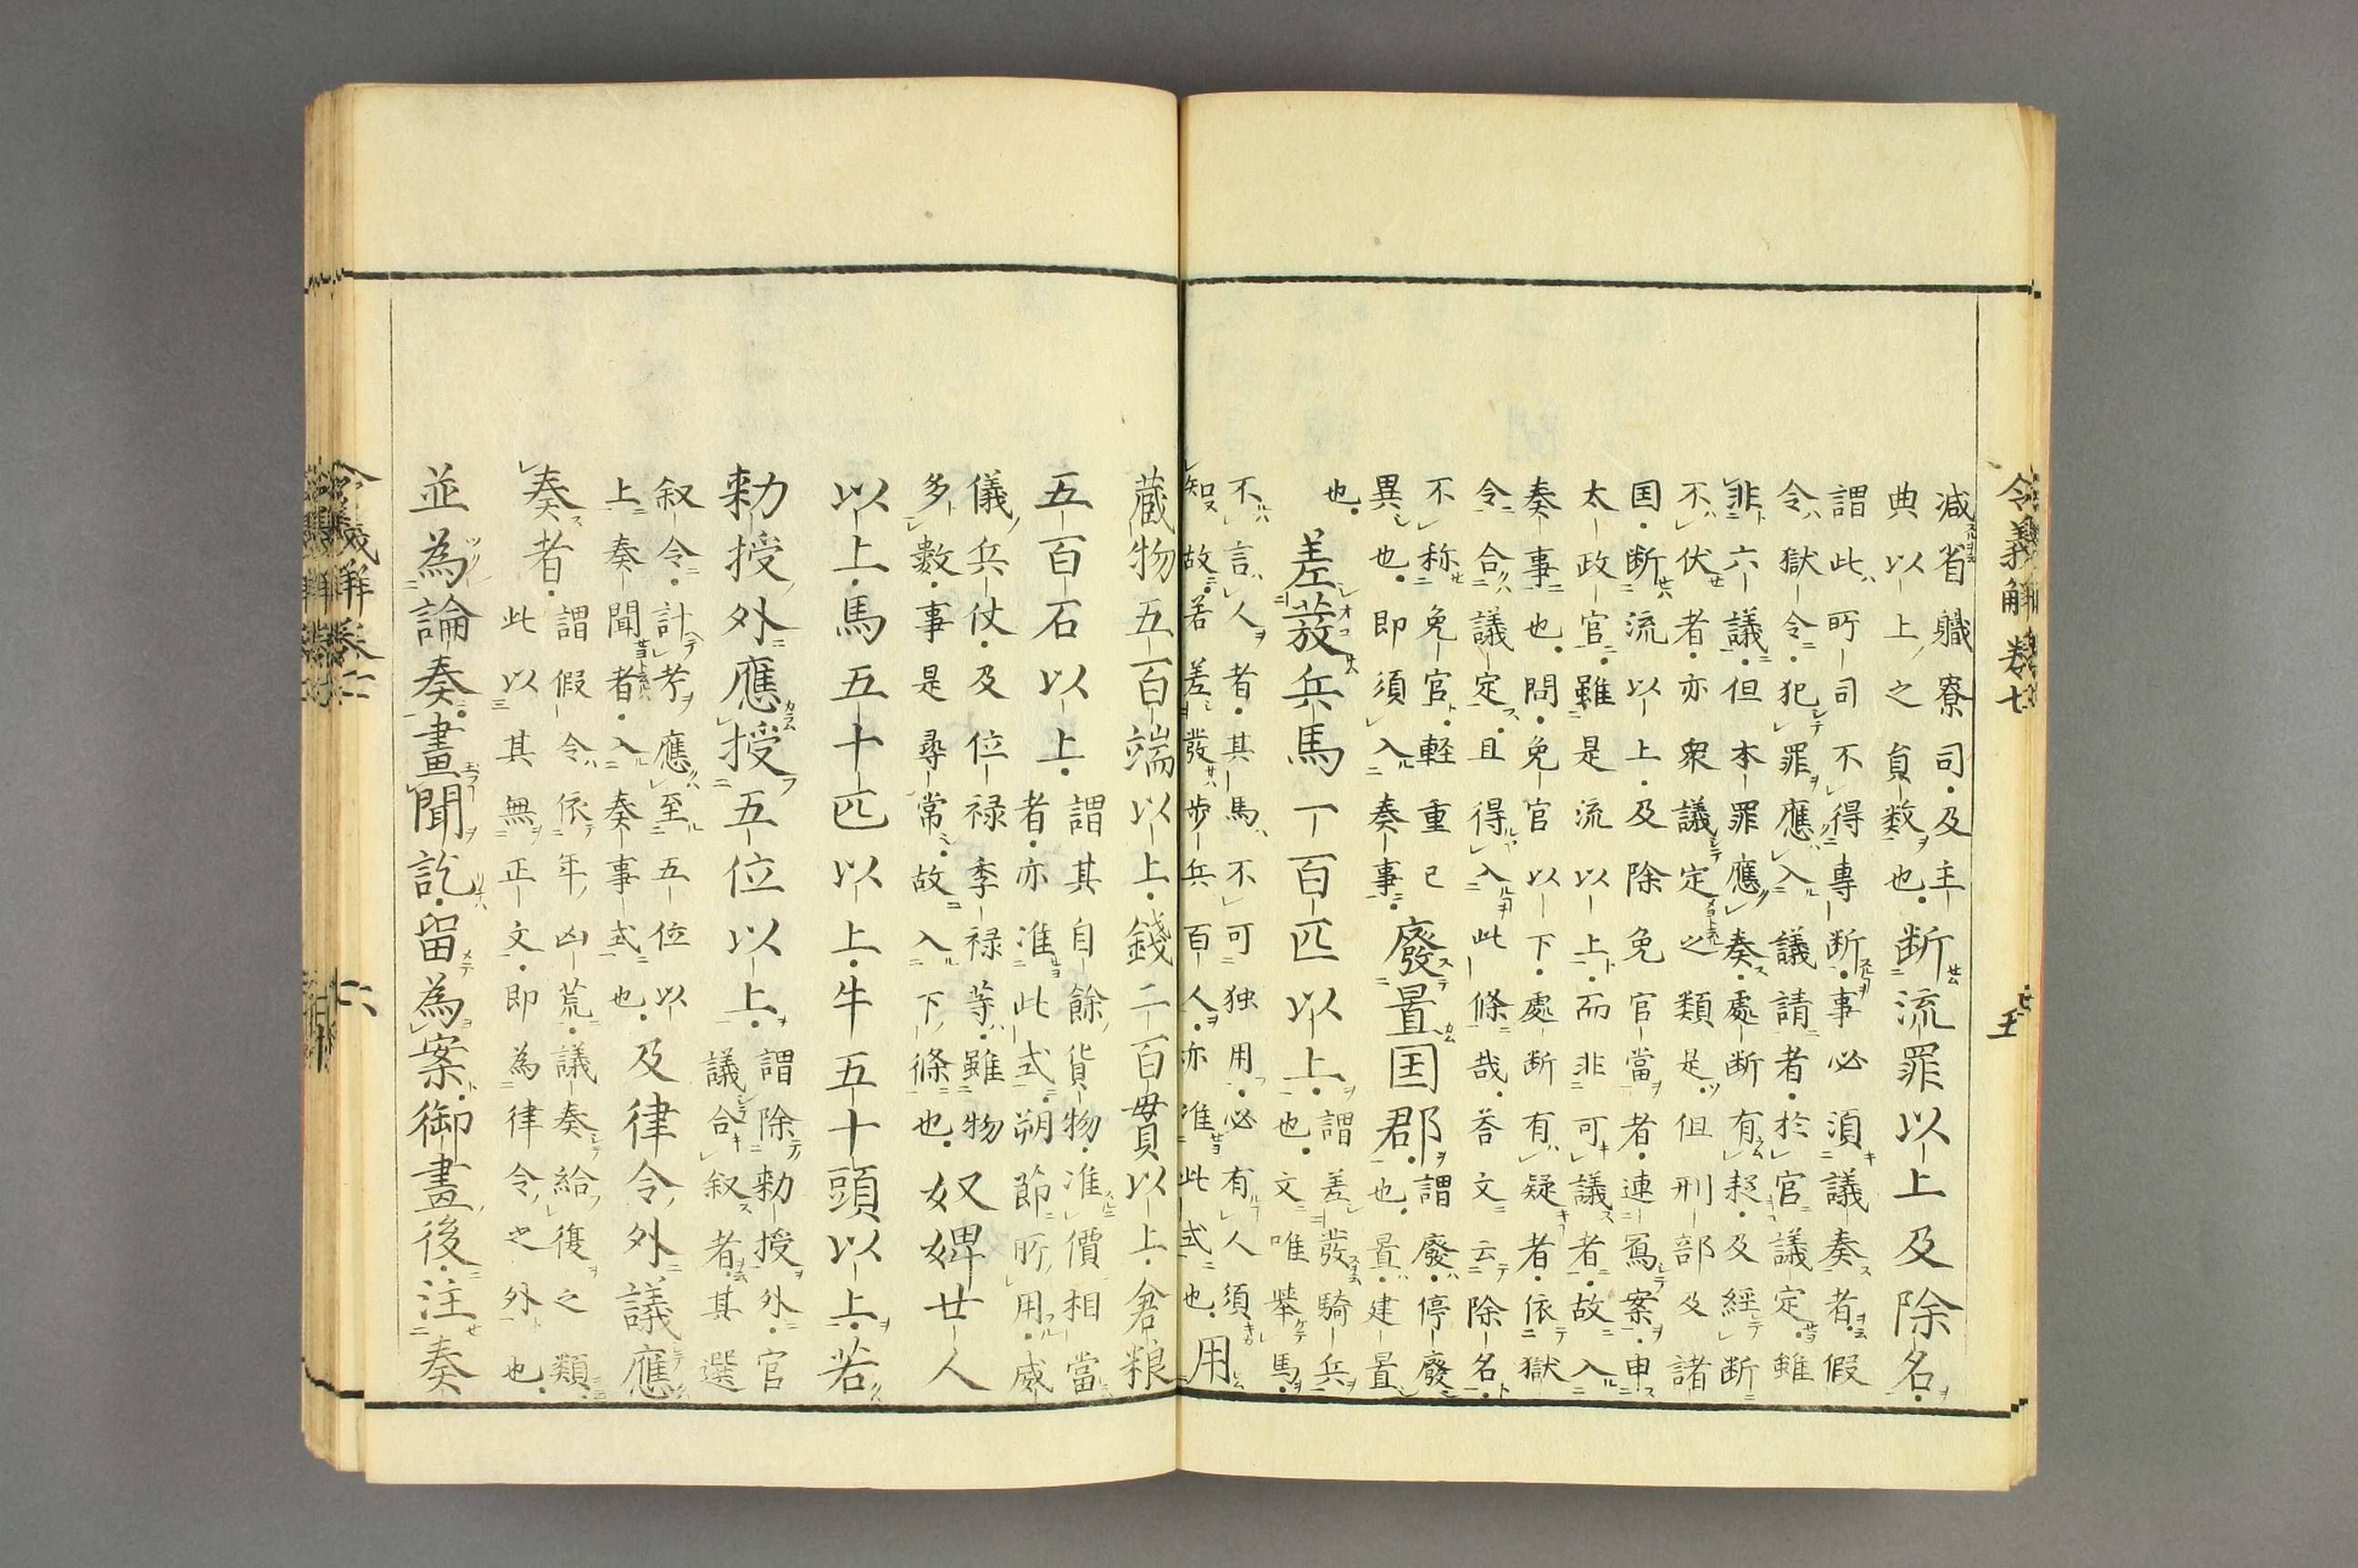 令義解巻七
減省職寮司及主
典以上之員数也
断流罪以上及除名
謂此所司不得專断事必須議奏者假
令獄令犯罪應入議請者於官議定雖
非六議但本罪應奏處断有疑及經断
不伏者亦衆議定之類是但刑部及諸
国断流以上及除免官當者連冩案申
太政官雖是流以上而非可議者故入
奏事也問免官以下處断有疑者依獄
令合議定且得入此條哉荅文云除名
不称免官軽重已
異也即須入奏事
廢置国郡
謂廢停廢
也置建置
也
差發兵馬一百匹以上
謂差發騎兵
也文唯舉馬
不言人者其馬不可独用必有人須
知故若差發歩兵百人亦准此式也
用
藏物五百端以上錢二百貫以上倉粮
五百石以上
謂其自餘貨物准價相當
者亦准此式朔節所用威
儀兵仗及位禄季禄等雖物
多數事是尋常故入下條也
奴婢廿人
以上馬五十匹以上牛五十頭以上若
勑授外應授五位以上
謂除勑授外官
議合叙者其選
叙令計考應至五位以
上奏聞者入奏事式也
及律令外議應
奏者
謂假令依年凶荒議奏給復之類
此以其無正文即為律令之外也
並為論奏畫聞訖留為案御畫後注奏